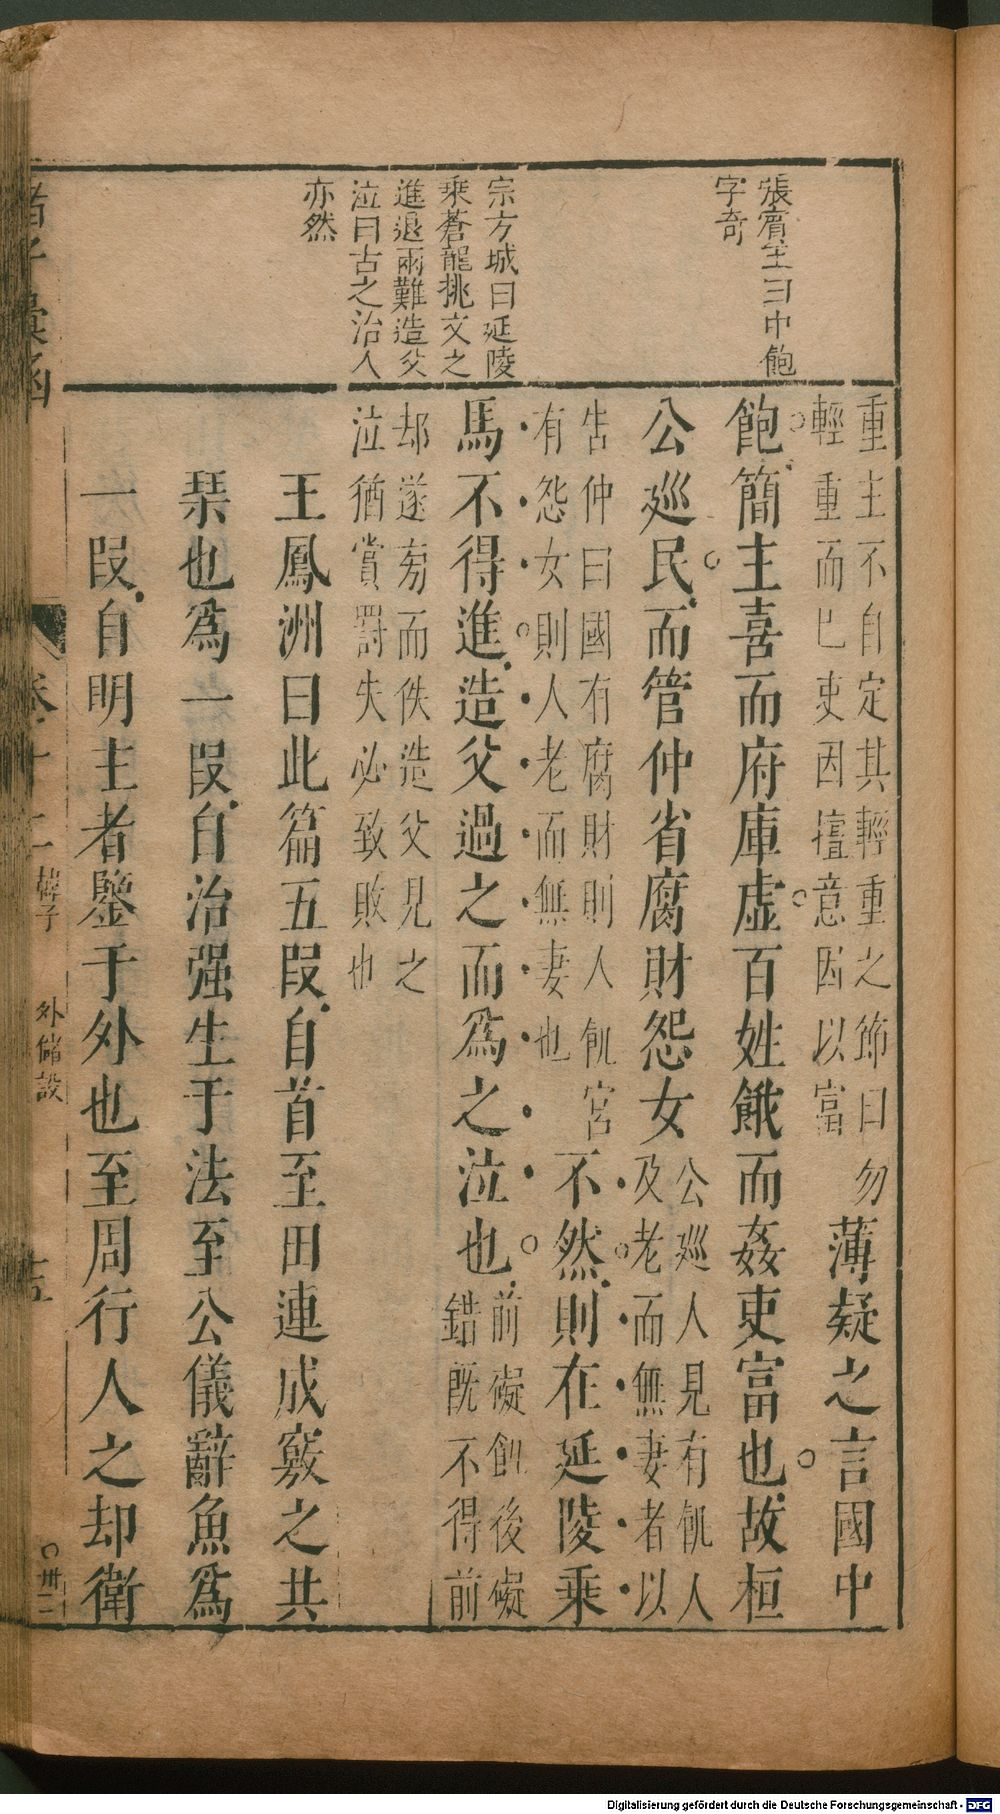 張賓王曰中飽
字奇
宗方城曰延陵
乘蒼龍挑文之
進退兩難造父
泣曰古之治人
亦然
重主不自定其輕重之節曰勿
輕重而已吏因擅意因以富
薄疑之言國中
飽簡主喜而府庫虛百姓餓而姦吏富也故桓
公巡民而管仲省腐財怨女
公巡人見有飢人
及老而無妻者以
告仲曰國有腐財則人飢宮
有怨女則人老而無妻也
不然則在延陵乘
馬不得進造父過之而爲之泣也
前礙飾後礙
錯既不得前
却遂旁而佚造父見之
泣猶賞罰失必致敗也
王鳳洲曰此篇五段自首至田連成竅之共
琹也爲一段自治强生于法至公儀辭魚爲
一段自明主者鑒于外也至周行人之却衛
諸子彙函
卷十二
韓子
外儲說
十五
Digitalisierung gefördert durch die Deutsche Forschungsgemeinschaft - DFG